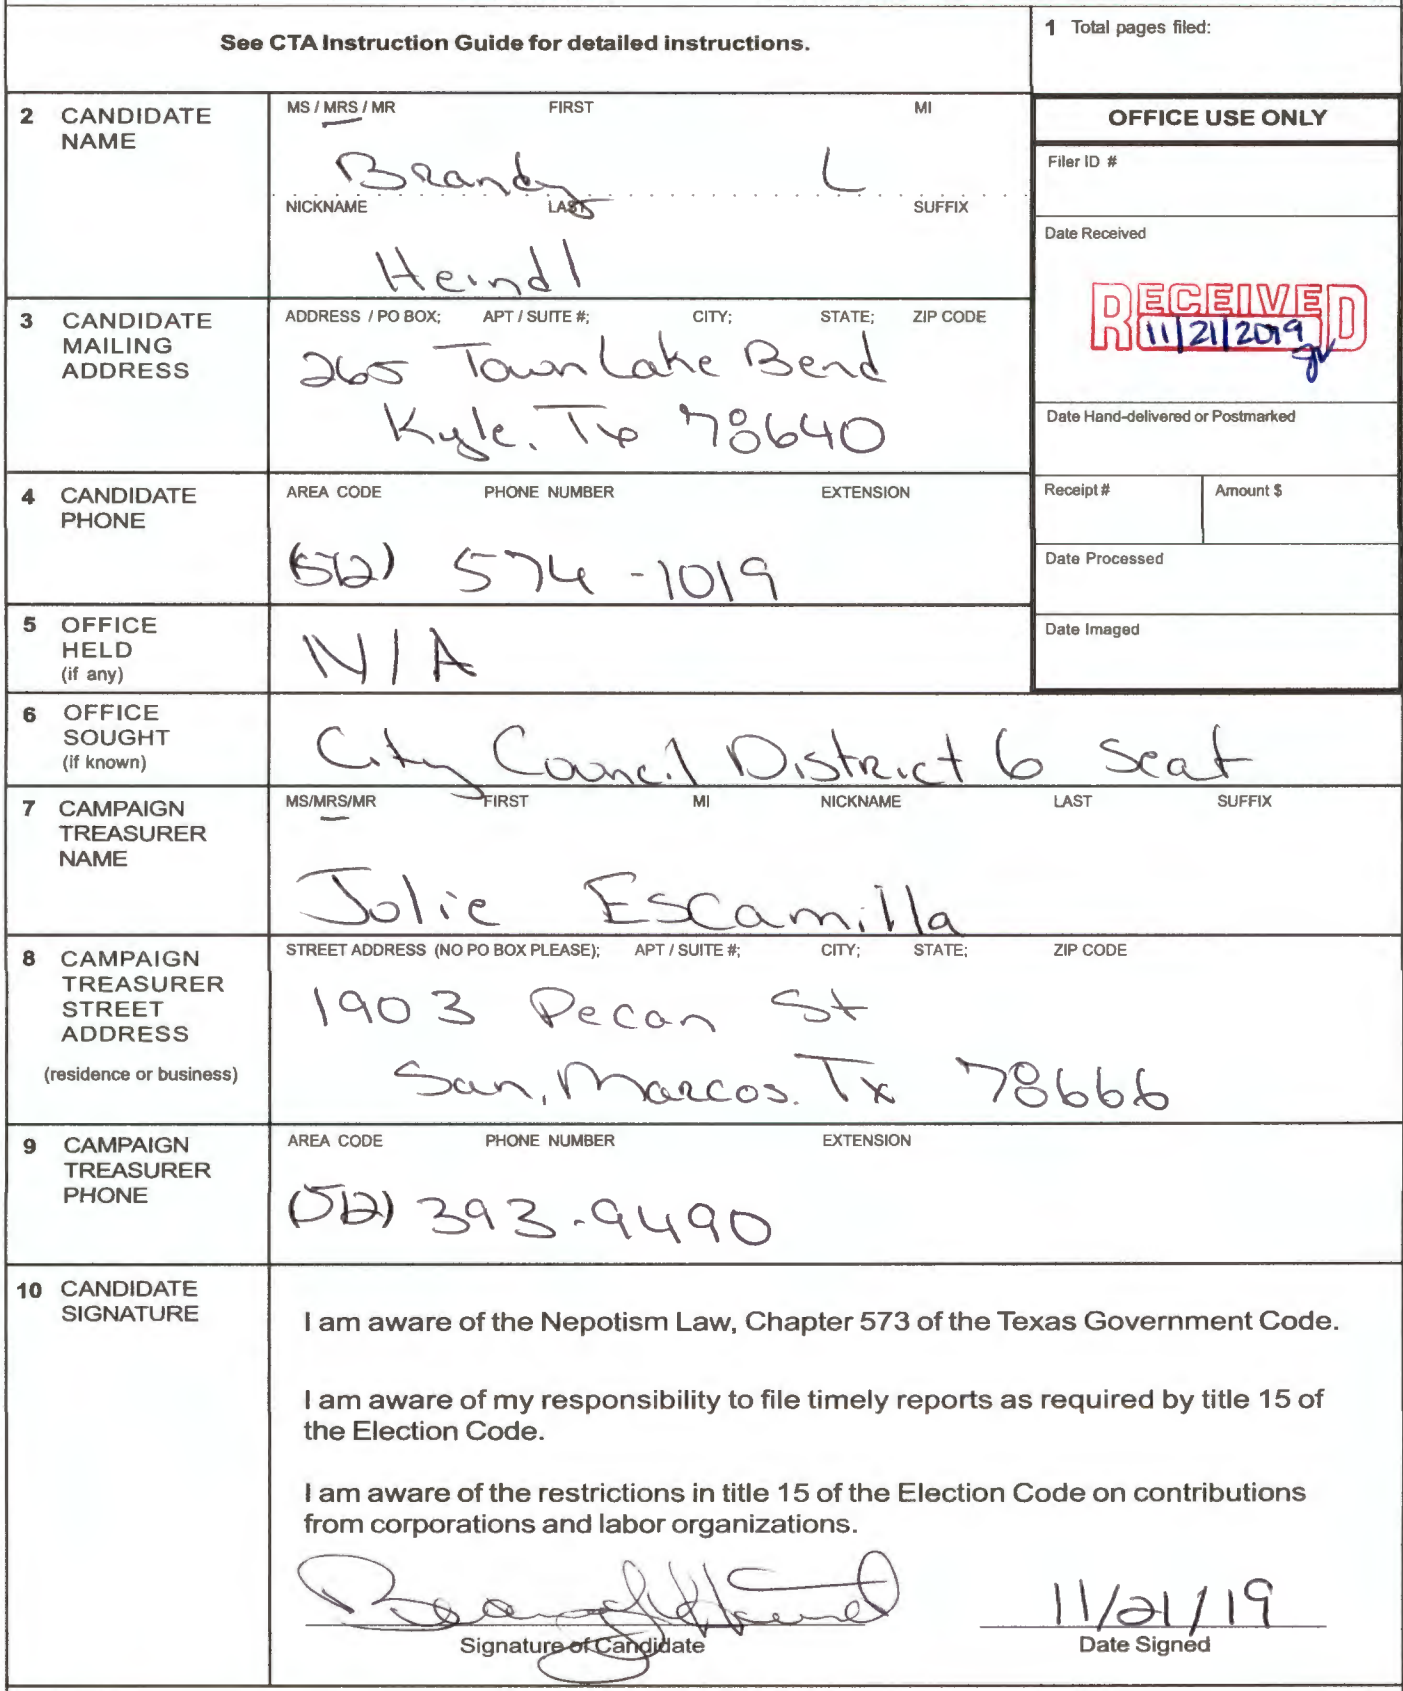 See CTA Instruction Guide for detailed instructions.
1 Total pages filed:
2 CANDIDATE NAME
MS / MRS / MR FIRST MI
Brandy L
NICKNAME LAST SUFFIX
Heindl
OFFICE USE ONLY
Filer ID #
Date Received
RECEIVED
11/21/2019
Date Hand-delivered or Postmarked
Receipt # Amount $
Date Processed
Date Imaged
3 CANDIDATE MAILING ADDRESS
ADDRESS / PO BOX; APT / SUITE #; CITY; STATE; ZIP CODE
265 Town Lake Bend
Kyle, Tx 78640
4 CANDIDATE PHONE
AREA CODE PHONE NUMBER EXTENSION
(512) 574-1019
5 OFFICE HELD (if any)
N/A
6 OFFICE SOUGHT (if known)
City Council District 6 Seat
7 CAMPAIGN TREASURER NAME
MS/MRS/MR FIRST MI NICKNAME LAST SUFFIX
Jolie Escamilla
8 CAMPAIGN TREASURER STREET ADDRESS
(residence or business)
STREET ADDRESS (NO PO BOX PLEASE); APT / SUITE #; CITY; STATE; ZIP CODE
1903 Pecan St
San, Marcos. Tx 78666
9 CAMPAIGN TREASURER PHONE
AREA CODE PHONE NUMBER EXTENSION
(512) 393-9490
10 CANDIDATE SIGNATURE
I am aware of the Nepotism Law, Chapter 573 of the Texas Government Code.
I am aware of my responsibility to file timely reports as required by title 15 of
the Election Code.
I am aware of the restrictions in title 15 of the Election Code on contributions
from corporations and labor organizations.
11/21/19
Signature of Candidate Date Signed